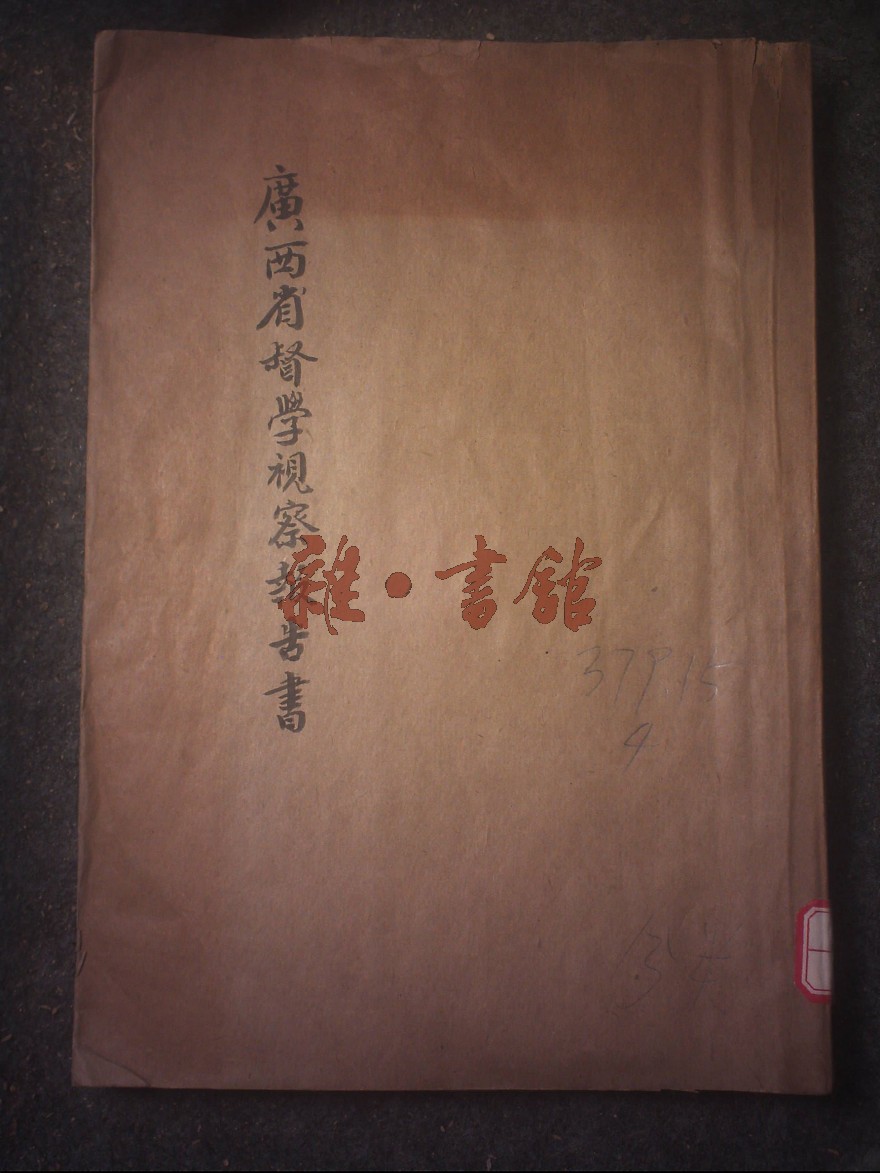 廣西省督學視察報告書
雜·書館
379.15
4